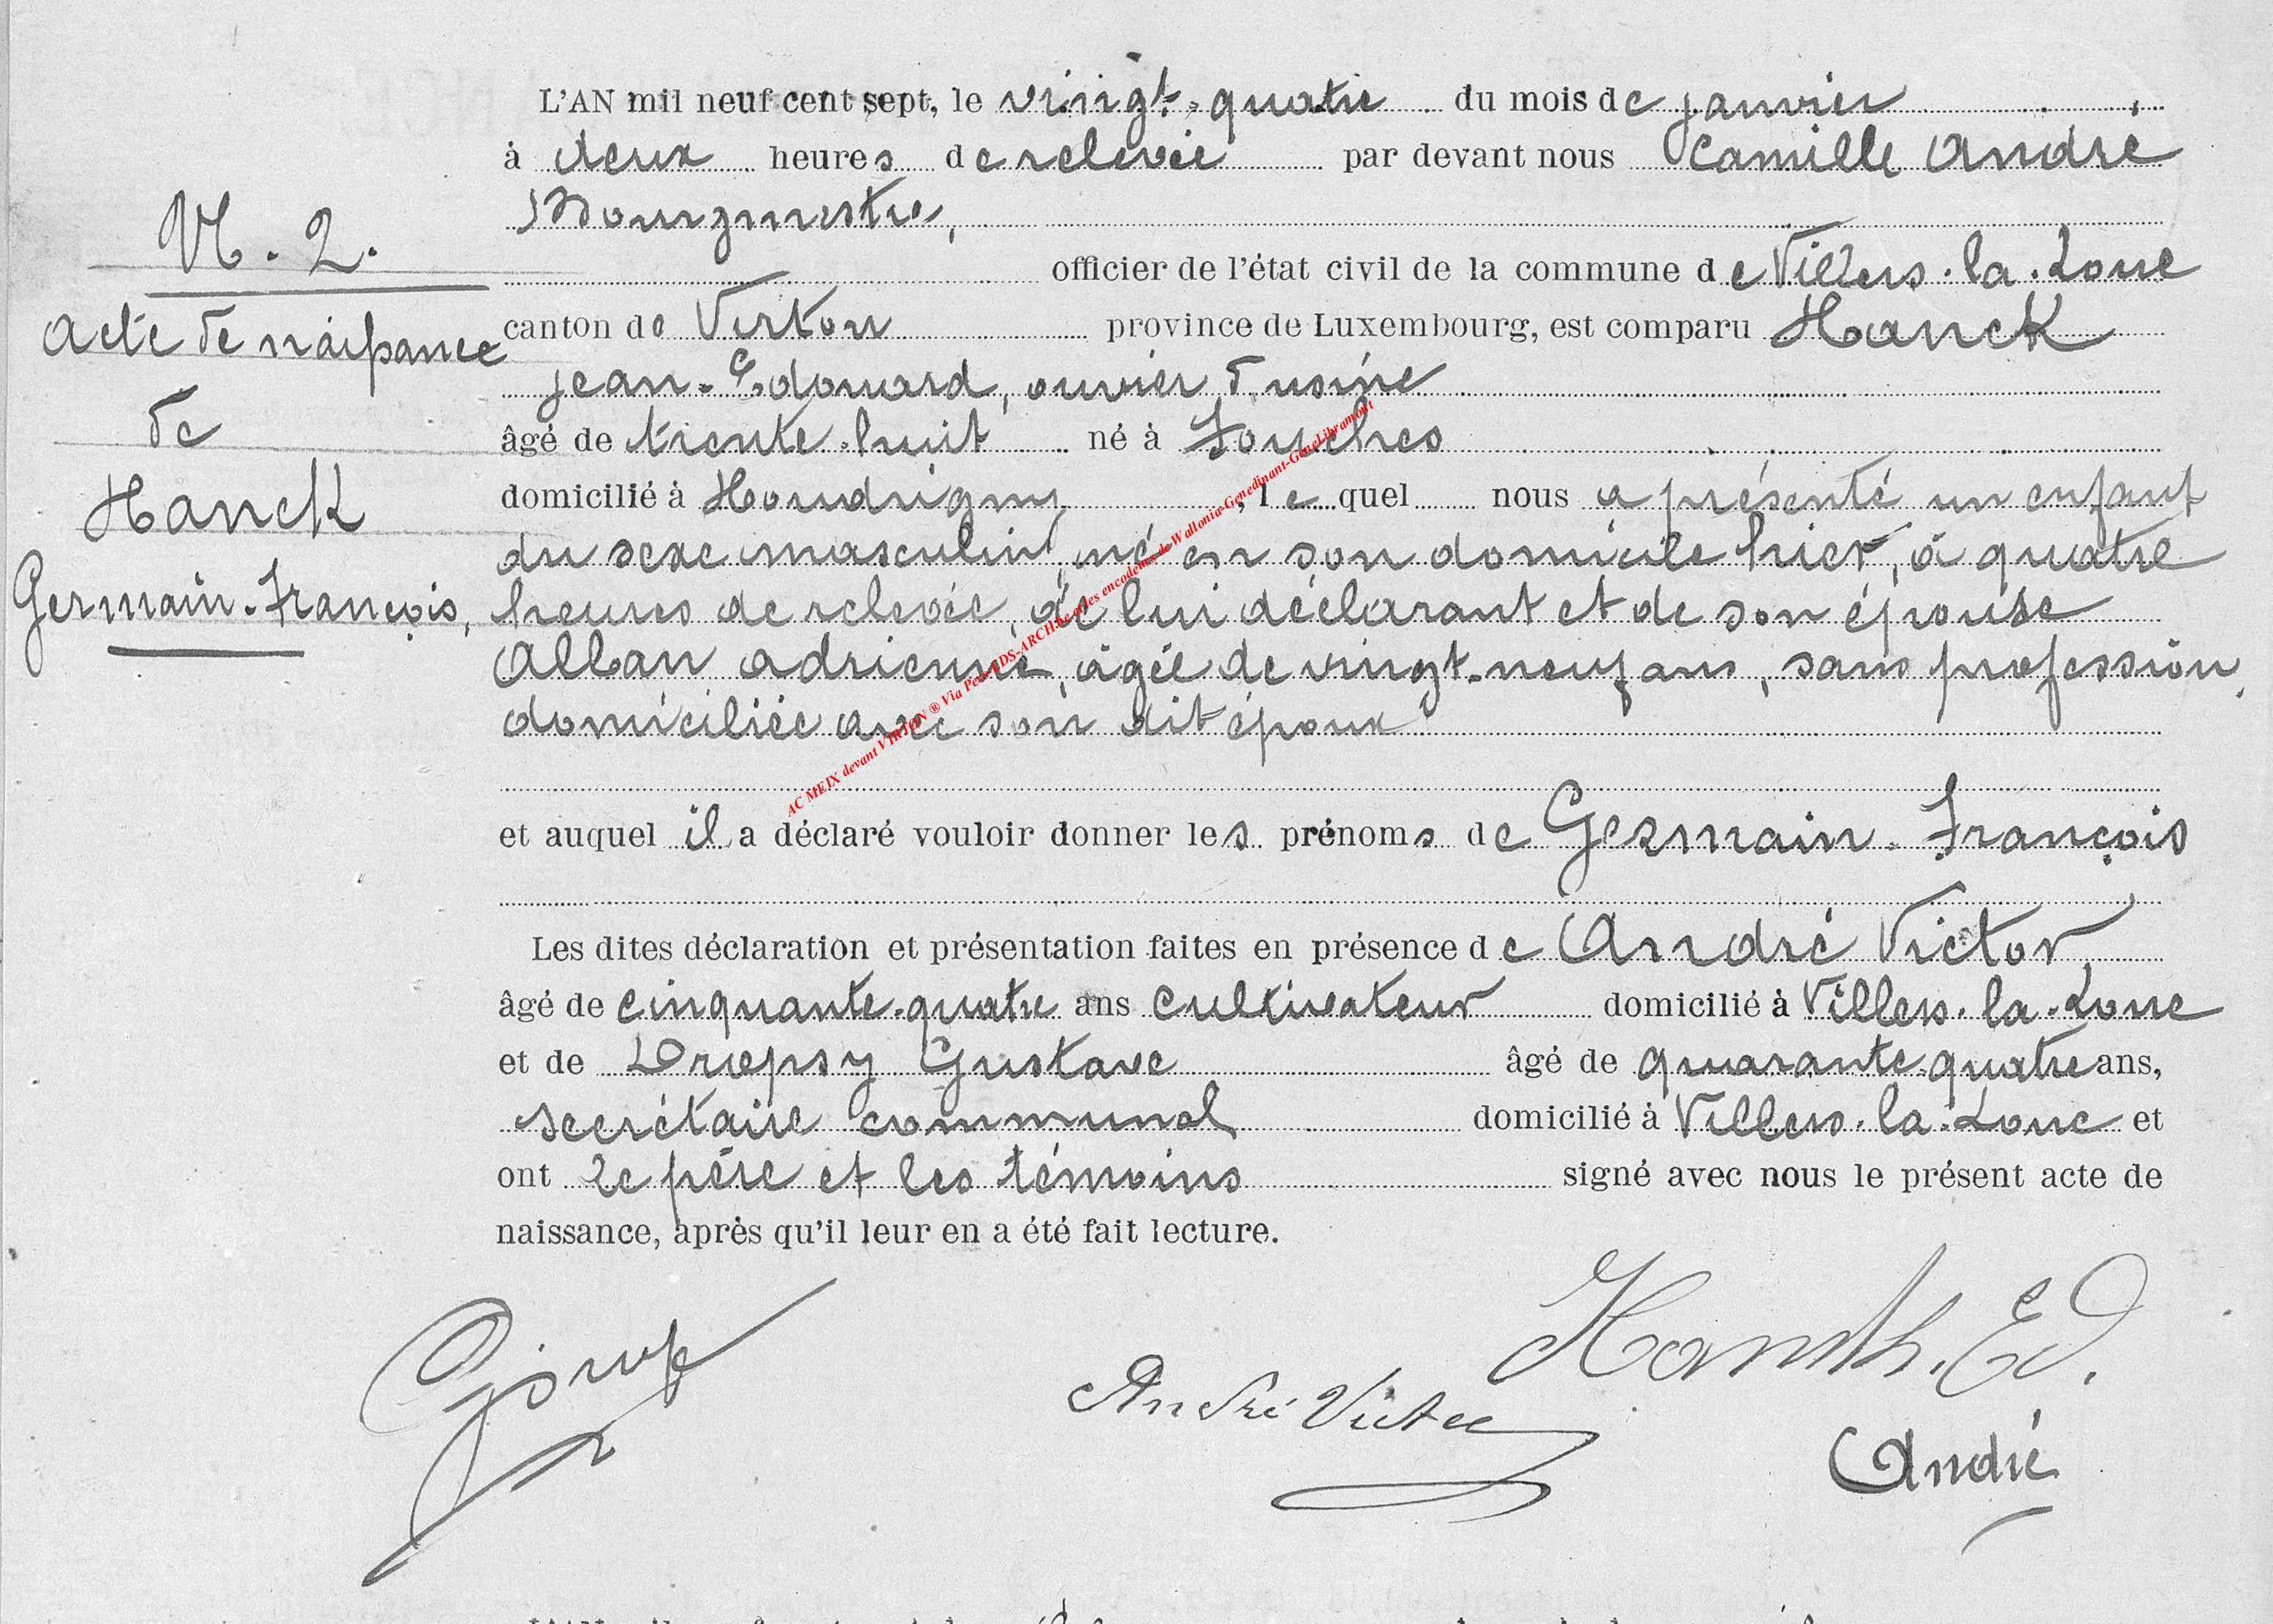 L'AN mil neuf cent sept, le vingt-quatre du mois de janvier
à deux heures de relevée par devant nous Camille André
Bourgmestre,
N. 2.
officier de l'état civil de la commune de Villers-la-Loue
Acte de naissance
canton de Virton province de Luxembourg, est comparu Hanck
Jean-Edouard, ouvrier d'usine
de
âgé de trente-huit né à Fouches
Hanck
domicilié à Houdrigny, lequel nous a présenté un enfant
du sexe masculin, né en son domicile hier, à quatre
Germain-François,
heures de relevée, de lui déclarant et de son épouse
Allan Adrienne, âgée de vingt-neuf ans, sans profession,
domiciliée avec son dit époux
AC MEIX devant VIRTON ® Via Pe DS-ARCH.be et les encodeurs de Wallonia-Genedinant-GeneLibramont
et auquel il a déclaré vouloir donner les prénoms de Germain-François
Les dites déclaration et présentation faites en présence de André Victor
âgé de cinquante-quatre ans cultivateur domicilié à Villers-la-Loue
et de Gustave âgé de quarante-quatre ans,
secrétaire communal domicilié à Villers-la-Loue et
ont le père et les témoins signé avec nous le présent acte de
naissance, après qu'il leur en a été fait lecture.
Ed.
André Victor
André